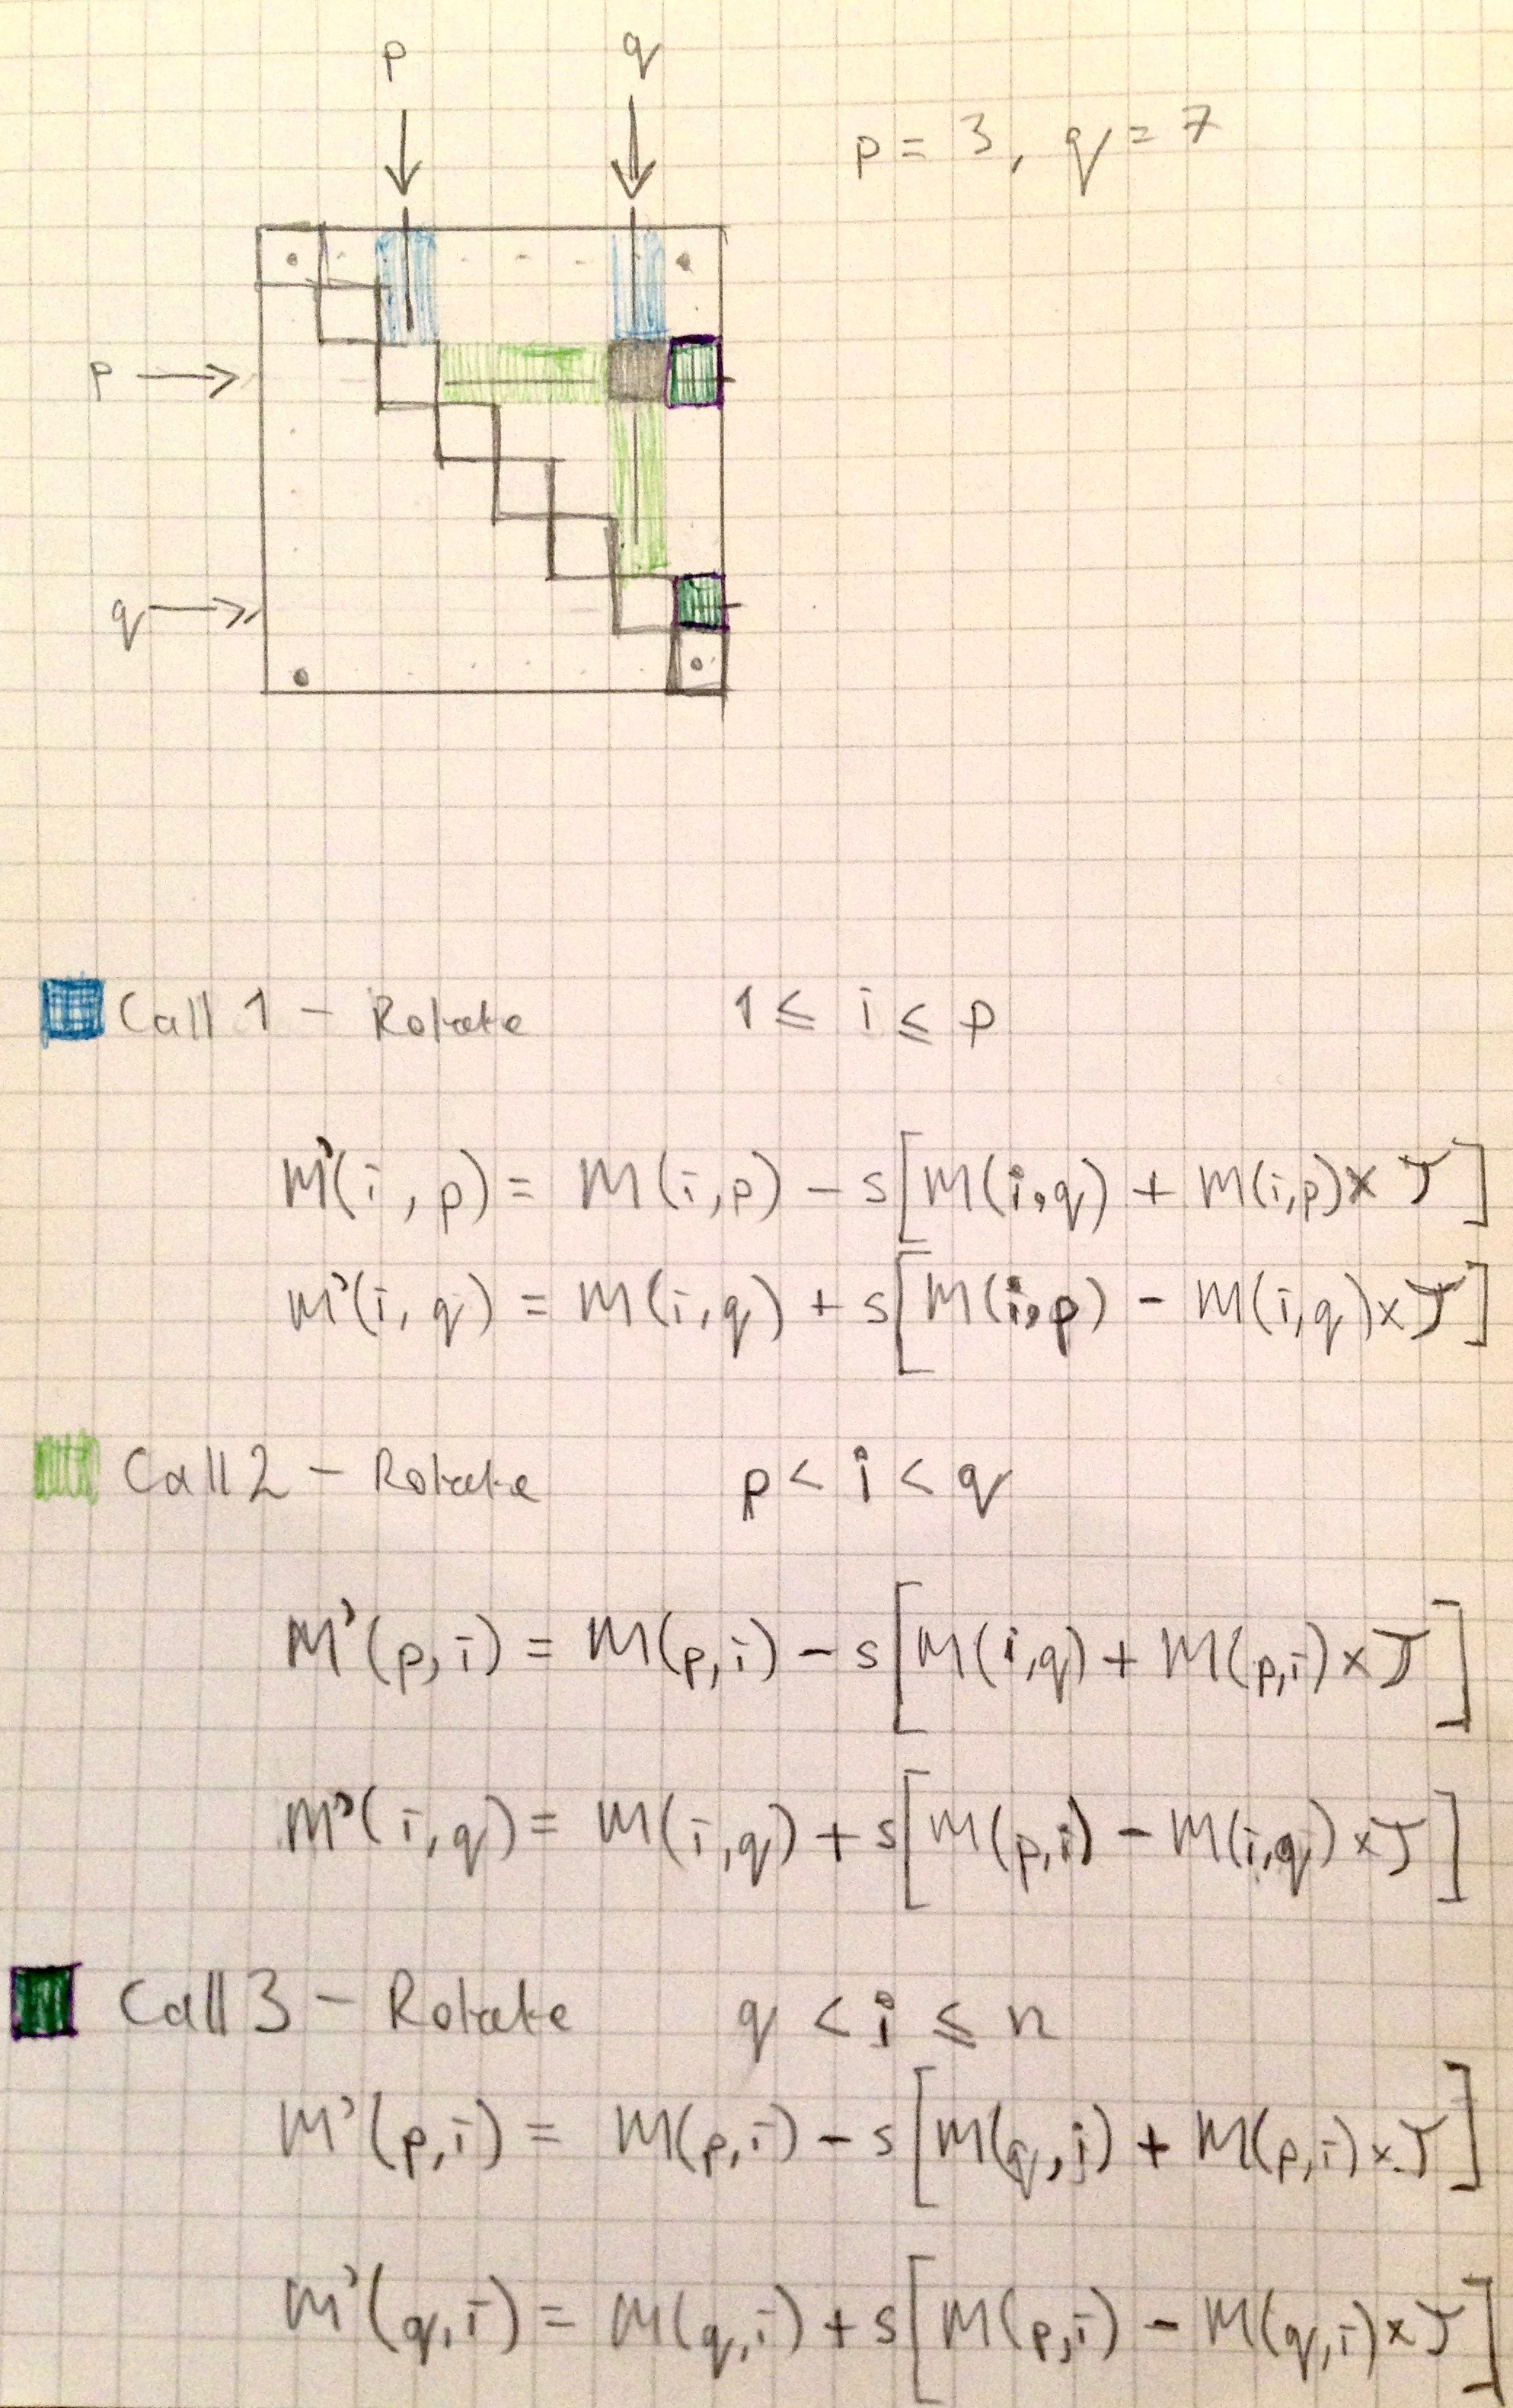 p q
p = 3, q = 7
p
q
Call 1 - Rotate 1 ≤ i ≤ p
M'(i, p) = M(i,p) - s[M(i,q) + M(i,p)× τ]
M'(i, q) = M(i,q) + s[M(i,p) - M(i,q)×τ]
Call 2 - Rotate p < i < q
M'(p,i) = M(p,i) - s[M(i,q) + M(p,i)×τ]
M'(i,q) = M(i,q) + s[M(p,i) - M(i,q)×τ]
Call 3 - Rotate q < i ≤ n
M'(p,i) = M(p,i) - s[M(q,i) + M(p,i)×τ]
M'(q,i) = M(q,i) + s[M(p,i) - M(q,i)×τ]